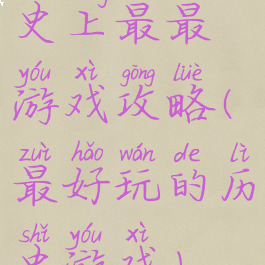 史上最最
yóu xì gōng lüè
游戏攻略(
zuì hǎo wán de lì
最好玩的历
shǐ yóu xì
史游戏)